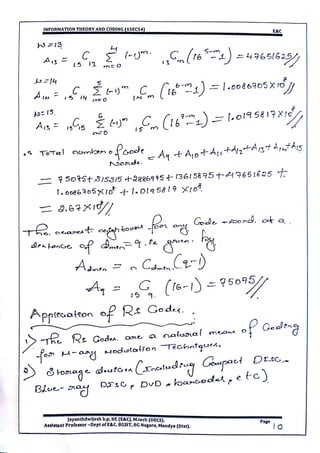 INFORMATION THEORY AND CODING (15EC54) E&C
W=13
A13 = 15C13 4Σm=0 (-1)^m. 13Cm (16^5-m -1) = 47651625//
W=14
A14 = 15C14 5Σm=0 (-1)^m 14Cm (16^6-m -1) = 1.0086705 X10^8//
W=15.
A15 = 15C15 6Σm=0 (-1)^m 15Cm (16^7-m -1) = 1.0195819 X10^8//
∴ Total number of Code Words. = A9 + A10 + A11 + A12 + A13 + A14 + A15
= 75075 + 315315 + 2886975 + 13615875 + 47651625 +
1.0086705 X10^8 + 1.0195819 X10^8
= 2.67 X10^8//
The nearest neighbours for any Code-word at a
distance of dmin = 9. is given by
Admin = nCdmin (q-1)
A9 = 15C9 (16-1) = 75075//
Application of RS Codes.
1) The RS Codes are a natural means of Coding
for M-ary Modulation Techniques.
2) Storage devices (including Compact DISC-
Blue-ray DISC, DVD, barcodes, etc)
Jayanthdwijesh h.p. BE (E&C), M.tech (DECS).
Assistant Professor -Dept of E&C, BGSIT, BG Nagara, Mandya (Dist).
Page 10